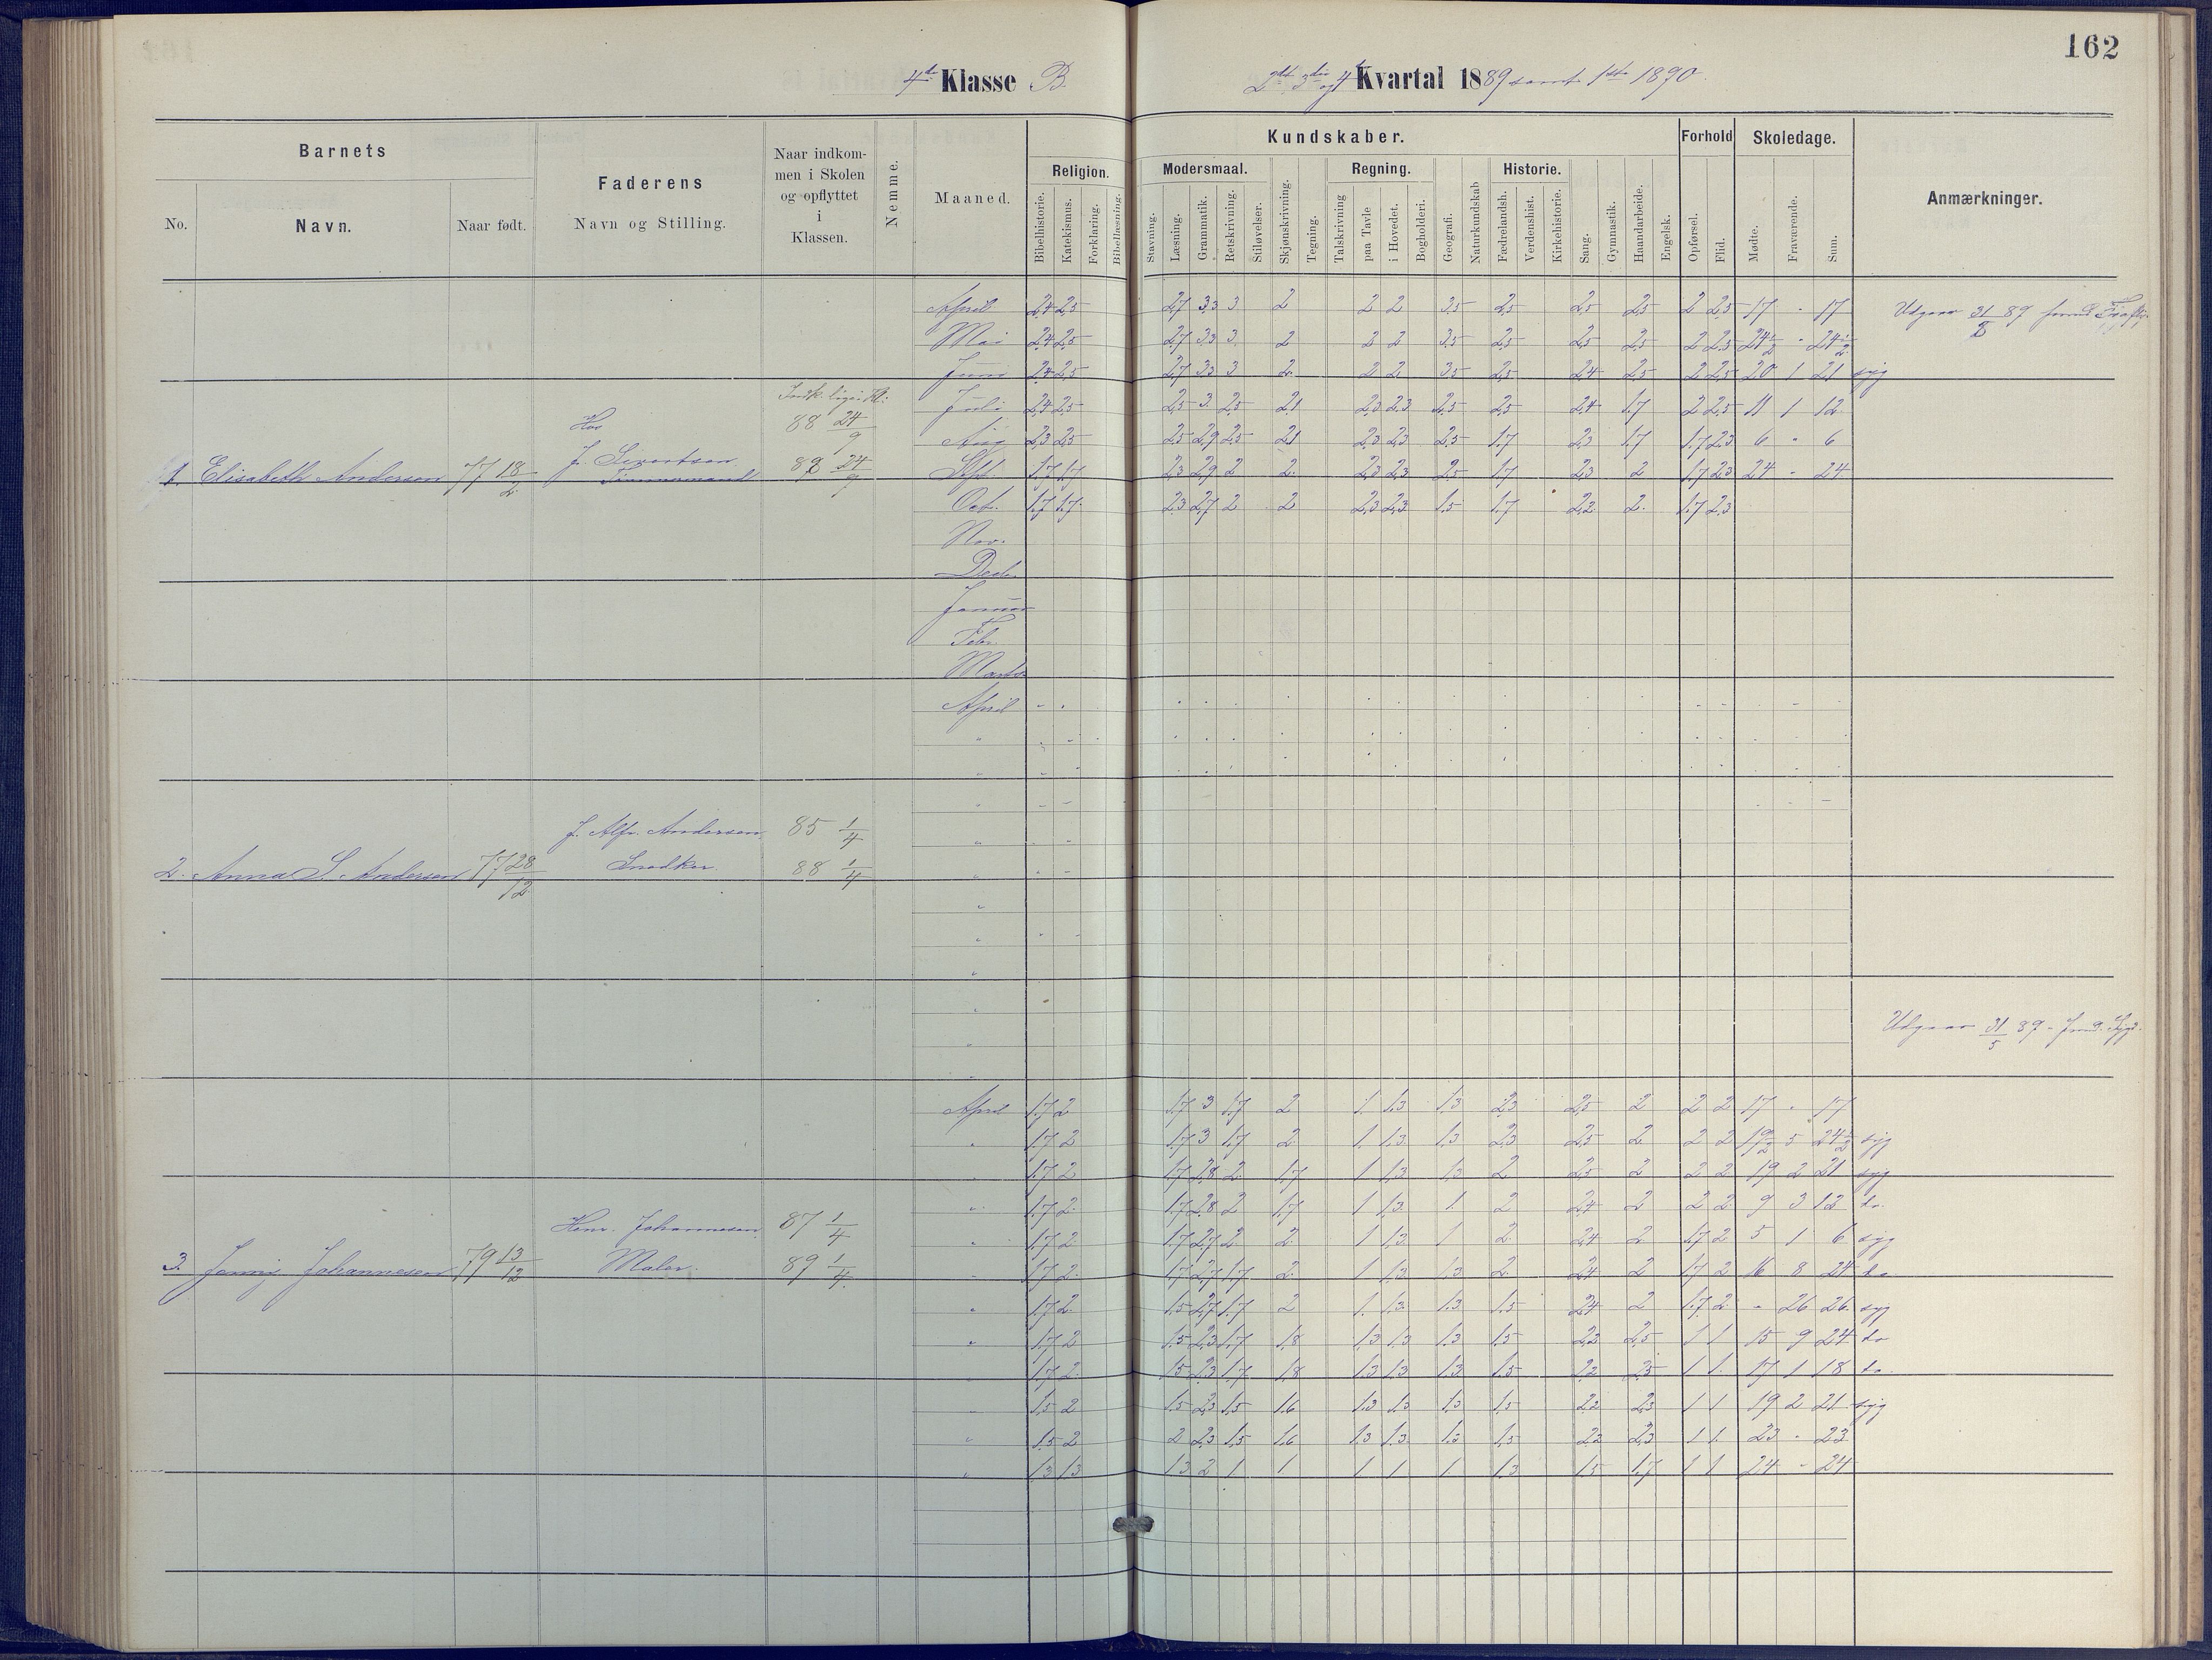 162
4de Klasse B.
2det 3die og 4de Kvartal 1889 samt 1ste 1890.
Barnets
Faderens
Naar indkommen i Skolen og opflyttet i Klassen.
Nemme.
Maaned.
Kundskaber.
Forhold
Skoledage.
Anmærkninger.
No.
Navn.
Naar født.
Navn og Stilling.
Religion.
Modersmaal.
Regning.
Historie.
Bibelhistorie.
Katekismus.
Forklaring.
Bibellæsning.
Stavning.
Læsning.
Grammatik.
Retskrivning.
Stiløvelser.
Skjønskrivning.
Tegning.
Talskrivning
paa Tavle
i Hovedet.
Bogholderi.
Geografi.
Naturkundskab
Fædrelandsh.
Verdenshist.
Kirkehistorie.
Sang.
Gymnastik.
Haandarbeide.
Engelsk.
Opførsel.
Flid.
Mødte.
Fraværende.
Sum.
April 2,4 2,5 2,7 3,3 3 2 2 2 3,5 2,5 2,5 2,5 2 2,5 17 - 17 Udgaar 31 89
Mai 2,4 2,5 2,7 3,3 3 2 2 2 3,5 2,5 2,5 2,5 2 2,5 24½ - 24½
Juni 2,4 2,5 2,7 3,3 3 2 2 2 3,5 2,5 2,4 2,5 2 2,5 20 1 21 syg
Juli 2,4 2,5 2,5 3 2,5 2,1 2,3 2,3 2,5 2,5 2,4 1,7 2 2,5 11 1 12
Hos 88 24/9
Aug 2,3 2,5 2,5 2,9 2,5 2,1 2,3 2,3 2,5 1,7 2,3 1,7 1,7 2,3 6 - 6
1. Elisabeth Andersen 77 18/2 J. Sivertsen Tømmermand 89 24/9 Sept. 1,7 1,7 2,3 2,9 2 2 2,3 2,3 2,5 1,7 2,3 2 1,7 2,3 24 - 24
Oct. 1,7 1,7 2,3 2,7 2 2 2,3 2,3 1,5 1,7 2,2 2 1,7 2,3
Nov.
Decb.
Januar
Febr.
Marts
April
J. Alfr. Andersen 85 1/4
2. Anna S. Andersen 77 28/12 Snedker 88 1/4
Udgaar 31/5 89
April 1,7 2 1,7 3 1,7 2 1 1,3 1,3 2,3 2,5 2 2 2 17 - 17
" 1,7 2 1,7 3 1,7 2 1 1,3 1,3 2,3 2,5 2 2 2 19½ 5 24½ syg
" 1,7 2 1,7 2,8 2 1,7 1 1,3 1,3 2 2,5 2 2 2 19 2 21 syg
" 1,7 2 1,7 2,8 2 1,7 1 1,3 1 2 2,4 2 2 2 9 3 12 do
Henr. Johannesen 87 1/4 " 1,7 2 1,7 2,7 2 2 1 1,3 1 2 2,4 2 1,7 2 5 1 6 syg
3. Jenny Johannesen 79 13/12 Maler 89 1/4 " 1,7 2 1,7 2,7 1,7 2 1 1,3 1,3 2 2,4 2 1,7 2 16 8 24 do
" 1,7 2 1,5 2,7 1,7 2 1 1,3 1,3 1,5 2,4 2 1,7 2 - 26 26 syg
" 1,7 2 1,5 2,3 1,7 1,8 1,3 1,3 1,3 1,5 2,2 2,5 1 1 15 9 24 do
" 1,7 2 1,5 2,3 1,7 1,8 1,3 1,3 1,3 1,5 2,2 2,5 1 1 17 1 18 do
" 1,5 2 1,5 2,3 1,5 1,6 1,3 1,3 1,3 1,5 2,2 2,3 1 1 19 2 21 syg
" 1,5 2 2 2,3 1,5 1,6 1,3 1,3 1,3 1,5 2,2 2,3 1 1 23 - 23
" 1,3 1,3 1,3 2 1 1 1 1 1 1,3 1,5 1,7 1 1 24 - 24